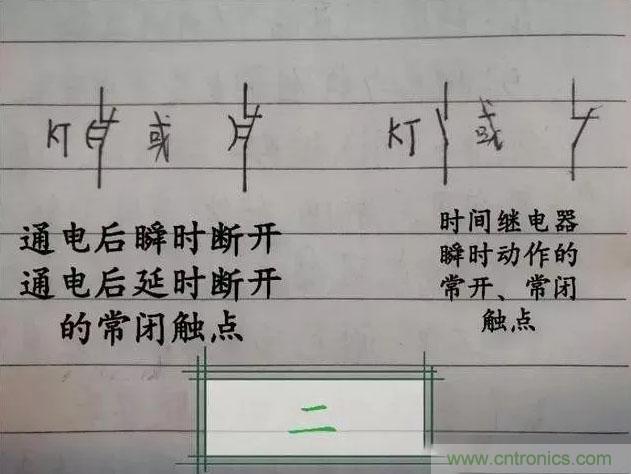 KT 或 KT 或
通电后瞬时断开
通电后延时断开
的常闭触点
时间继电器
瞬时动作的
常开、常闭
触点
二
www.cntronics.com